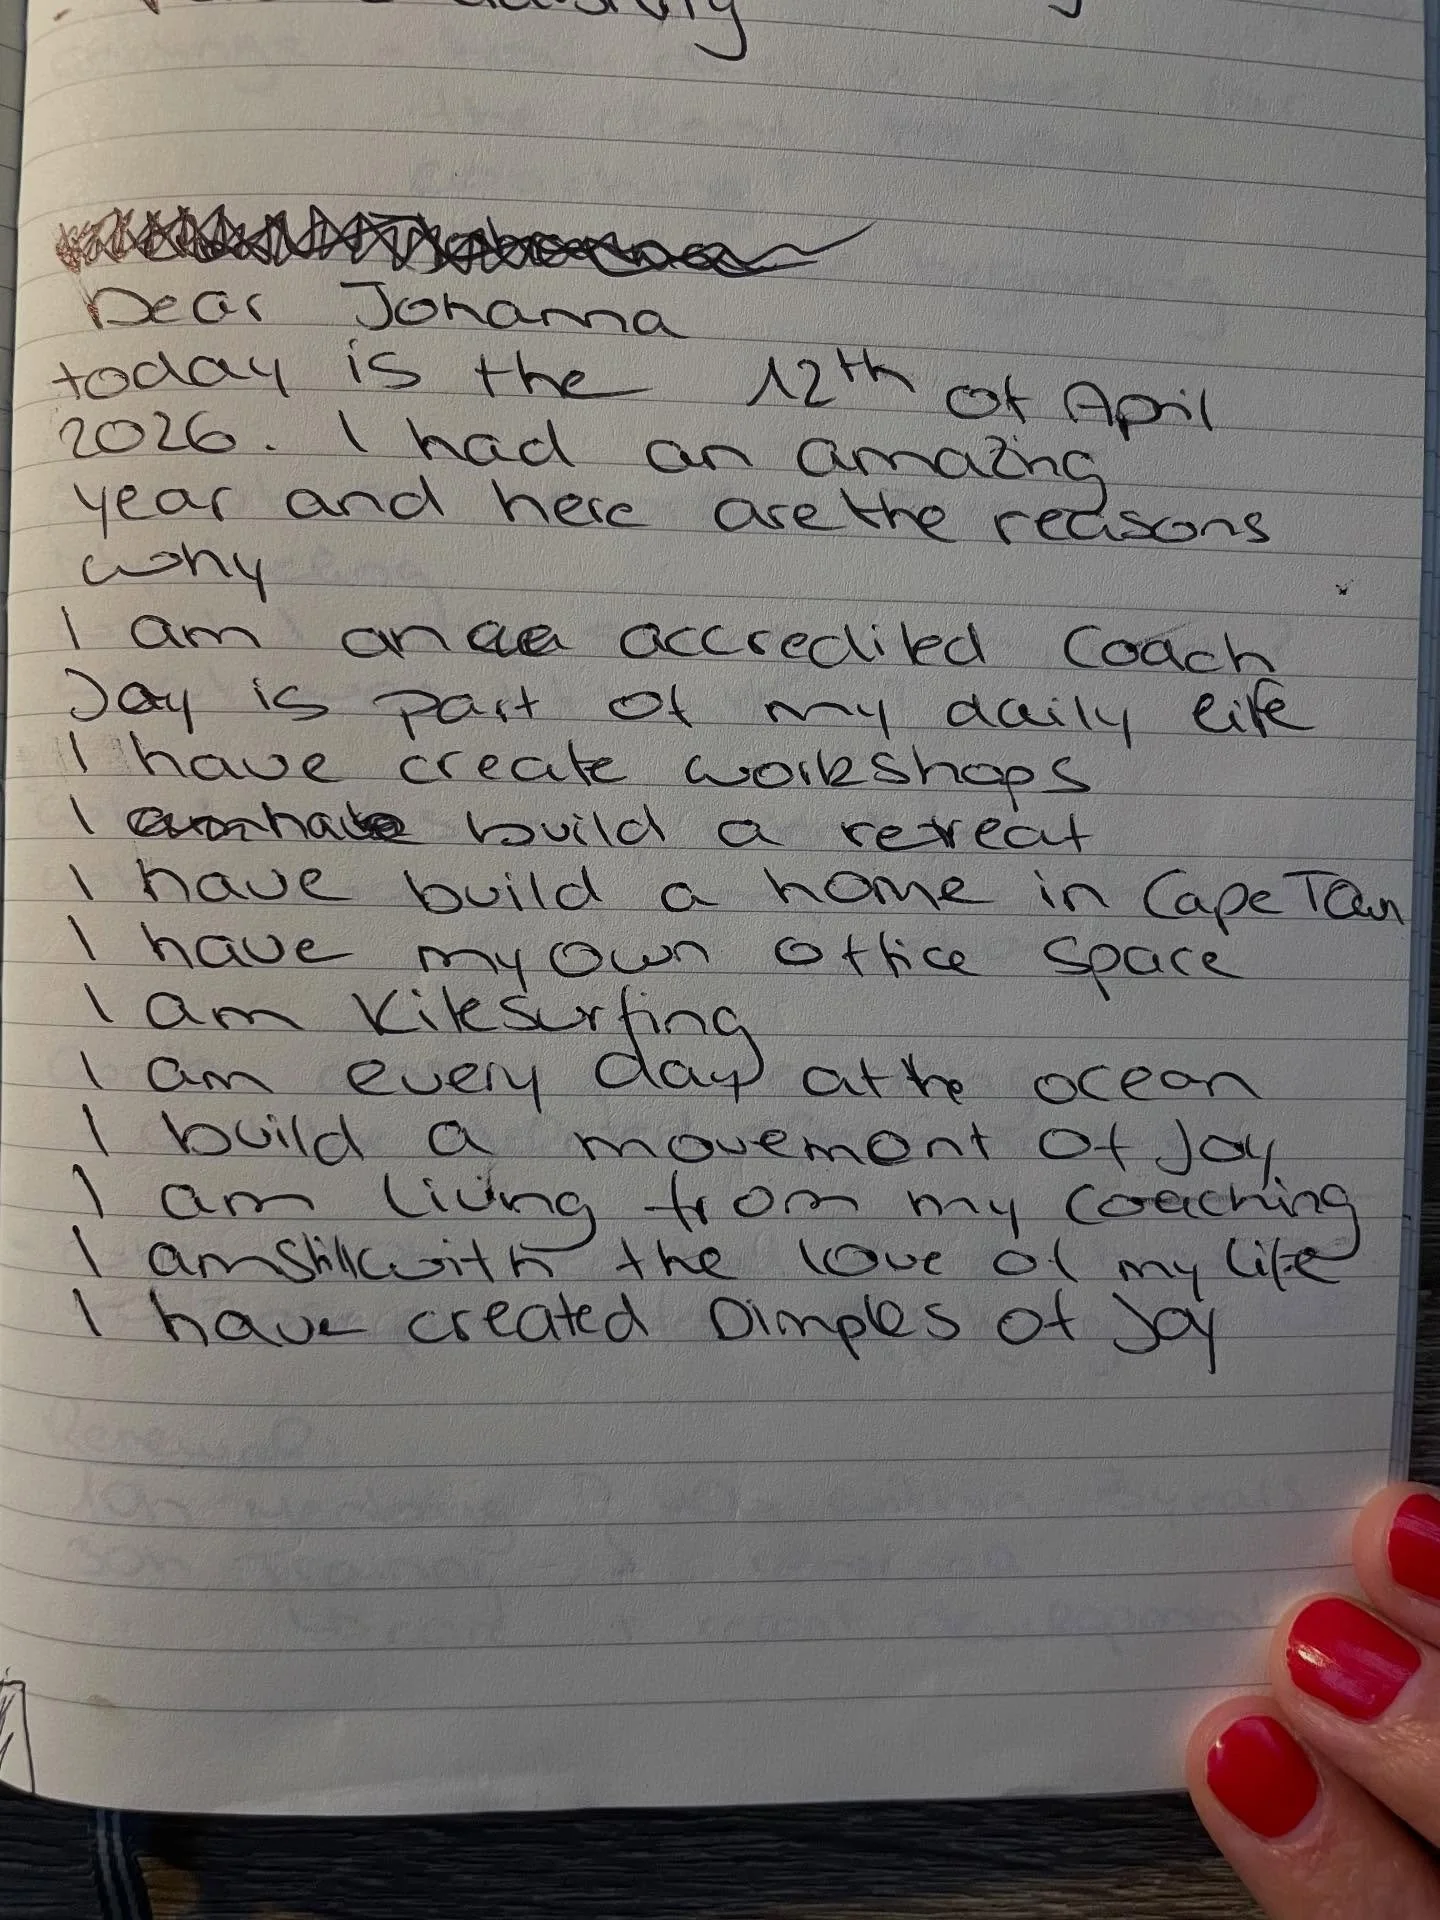 Dear Johanna
today is the 12th of April
2026. I had an amazing
year and here are the reasons
why
I am an accredited Coach
Joy is part of my daily life
I have create workshops
I have build a retreat
I have build a home in Cape Town
I have my own office space
I am Kitesurfing
I am every day at the ocean
I build a movement of Joy
I am living from my coaching
I am still with the love of my life
I have created Dimples of Joy